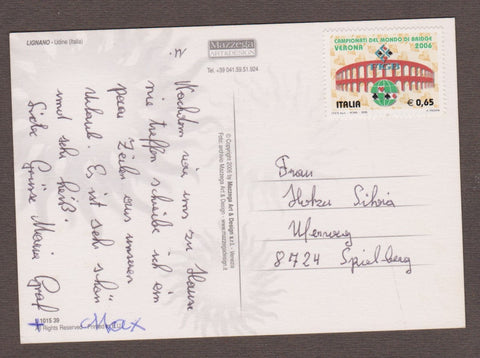 LIGNANO - Udine (Italia)
Mazzega
ART&DESIGN
Tel. +39 041.59.51.924
CAMPIONATI DEL MONDO DI BRIDGE
VERONA 2006
ITALIA € 0,65
© Copyright 2006 by Mazzega Art & Design s.r.l. - Venezia
Foto: archivio Mazzega Art & Design - www.mazzegadesign.it
Nachdem wir uns zu Hause
nie treffen schreibe ich ein
paar Zeilen aus unserem
Urlaub. Es ist sehr schön
und sehr heiß.
Liebe Grüsse Maria Graf
+ Max
Frau
Silvia
8724 Spielberg
1015 39
All Rights Reserved - Printed in